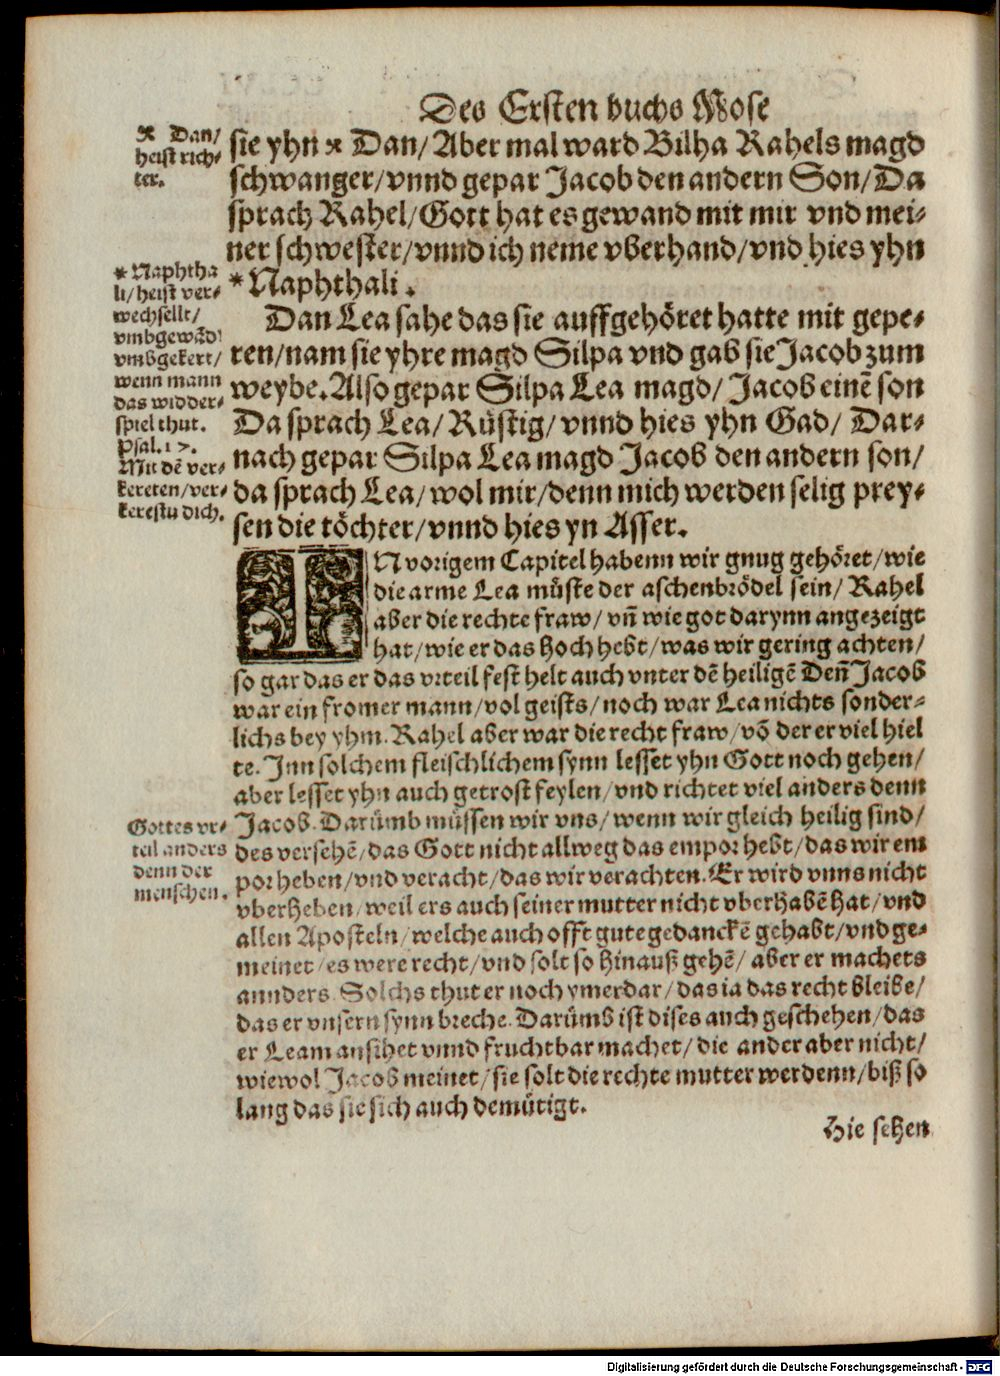 Des Ersten buchs Mose
⁕ Dan/
heist rich⸗
ter.
sie yhn ⁕ Dan/ Aber mal ward Bilha Rahels magd
schwanger/ vnnd gepar Jacob den andern Son/ Da
sprach Rahel/ Gott hat es gewand mit mir vnd mei⸗
ner schwester/ vnnd ich neme vberhand/ vnd hies yhn
* Naphthali.
* Naphtha
li/ heist ver⸗
wechsellt/
vmbgewãd
vmbgekert/
wenn mann
das widder⸗
spiel thut.
Psal. 17.
Mit dẽ ver⸗
kereten/ ver⸗
kerestu dich.
Dan Lea sahe das sie auffgehöret hatte mit gepe⸗
ren/ nam sie yhre magd Silpa vnd gab sie Jacob zum
weybe. Also gepar Silpa Lea magd/ Jacob einẽ son
Da sprach Lea/ Rüstig/ vnnd hies yhn Gad/ Dar⸗
nach gepar Silpa Lea magd Jacob den andern son/
da sprach Lea/ wol mir/ denn mich werden selig prey⸗
sen die töchter/ vnnd hies yn Asser.
IN vorigem Capitel habenn wir gnug gehöret/ wie
die arme Lea müste der aschenbrödel sein/ Rahel
aber die rechte fraw/ vñ wie got darynn angezeigt
hat/ wie er das hoch hebt/ was wir gering achten/
so gar das er das vrteil fest helt auch vnter dẽ heiligẽ Deñ Jacob
war ein fromer mann/ vol geists/ noch war Lea nichts sonder⸗
lichs bey yhm. Rahel aber war die recht fraw/ võ der er viel hiel
te. Inn solchem fleischlichem synn lesset yhn Gott noch gehen/
aber lesset yhn auch getrost feylen/ vnd richtet viel anders denn
Jacob. Darümb müssen wir vns/ wenn wir gleich heilig sind/
des versehẽ/ das Gott nicht allweg das empor hebt/ das wir em
por heben/ vnd veracht/ das wir verachten. Er wird vnns nicht
vberheben/ weil ers auch seiner mutter nicht vberhabẽ hat/ vnd
allen Aposteln/ welche auch offt gute gedanckẽ gehabt/ vnd ge⸗
meinet/ es were recht/ vnd solt so hinauß gehẽ/ aber er machets
annders. Solchs thut er noch ymerdar/ das ia das recht bleibe/
das er vnsern synn breche. Darümb ist dises auch geschehen/ das
er Leam ansihet vnnd fruchtbar machet/ die ander aber nicht/
wiewol Jacob meinet/ sie solt die rechte mutter werdenn/ biß so
lang das sie sich auch demütigt.
Gottes vr⸗
teil anders
denn der
menschen.
Hie sehen
Digitalisierung gefördert durch die Deutsche Forschungsgemeinschaft - DFG